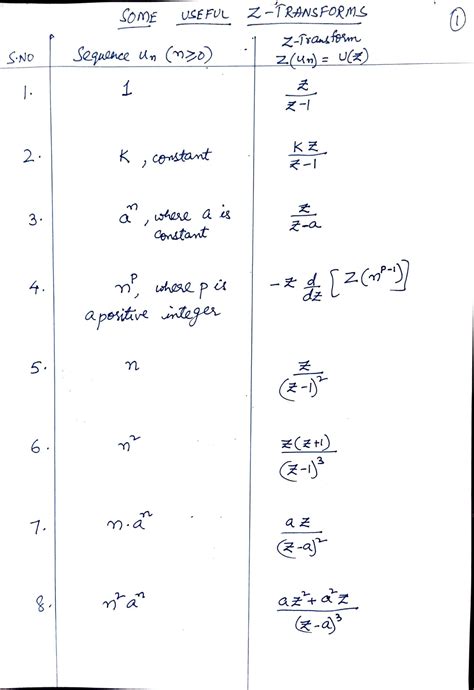 SOME USEFUL Z-TRANSFORMS
1
S.NO Sequence Un (n≥0) Z-Transform Z(Un) = U(Z)
1. 1 z/(z-1)
2. K, constant Kz/(z-1)
3. aⁿ, where a is constant z/(z-a)
4. nᵖ, where p is a positive integer -z d/dz [Z(nᵖ⁻¹)]
5. n z/(z-1)²
6. n² z(z+1)/(z-1)³
7. n·aⁿ az/(z-a)²
8. n²aⁿ (az²+a²z)/(z-a)³